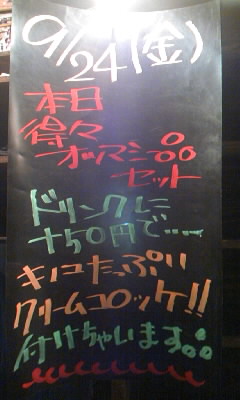 9/24(金)
本日
得々
オツマミ品
セット
ドリンクに
+50円で‥‥
キノコたっぷり
クリームコロッケ!!
付けちゃいます。。。